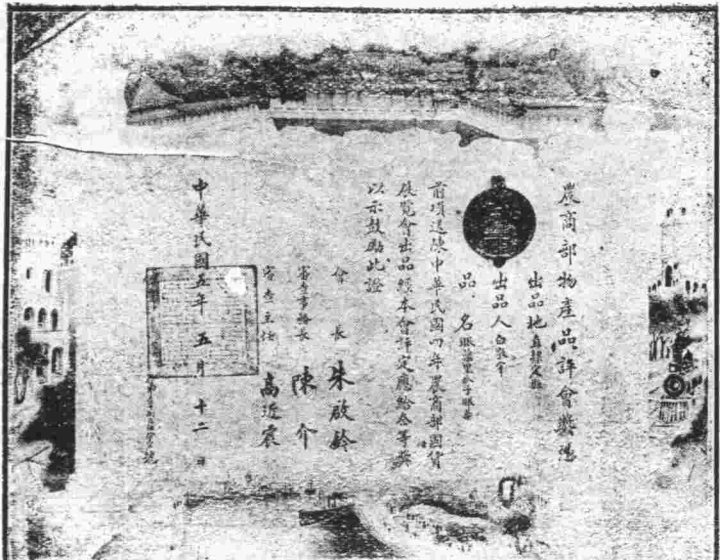 農商部物產品評會獎憑
出品地 直隸
出品人 白敬宇
品名 眼藥
前項送陳中華民國四年農商部國貨
展覽會出品經本會評定應給叁等獎
以示鼓勵此證
會長 朱啟鈐
審查事務長 陳介
審查主任 高近宸
中華民國五年五月十二日